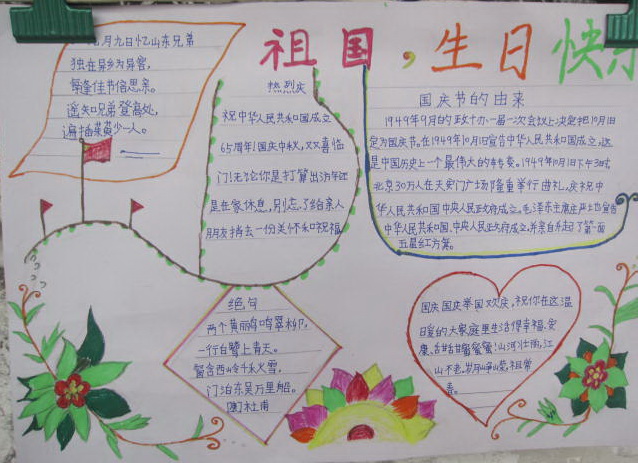 祖国，生日快乐
九月九日忆山东兄弟
独在异乡为异客，
每逢佳节倍思亲。
遥知兄弟登高处，
遍插茱萸少一人。
热烈庆
祝中华人民共和国成立
65周年!国庆中秋,双喜临
门!无论你是打算出游还
是在家休息,别忘了给亲人
朋友捎去一份关怀和祝福
国庆节的由来
1949年9月的政协一届一次会议上决定把10月1日
定为国庆节。在1949年10月1日宣告中华人民共和国成立,这
是中国历史上一个最伟大的转变。1949年10月1日下午3时,
北京30万人在天安门广场隆重举行典礼,庆祝中
华人民共和国中央人民政府成立。毛泽东主席庄严宣告
中华人民共和国,中央人民政府成立,并亲自升起了第一面
五星红旗。
绝句
两个黄鹂鸣翠柳,
一行白鹭上青天。
窗含西岭千秋雪,
门泊东吴万里船。
[唐]杜甫
国庆国庆举国欢庆,祝你在这温
暖的大家庭里生活得幸福,安
康,甜甜蜜蜜!山河壮丽,江
山不老。岁月峥嵘,祖常
春。